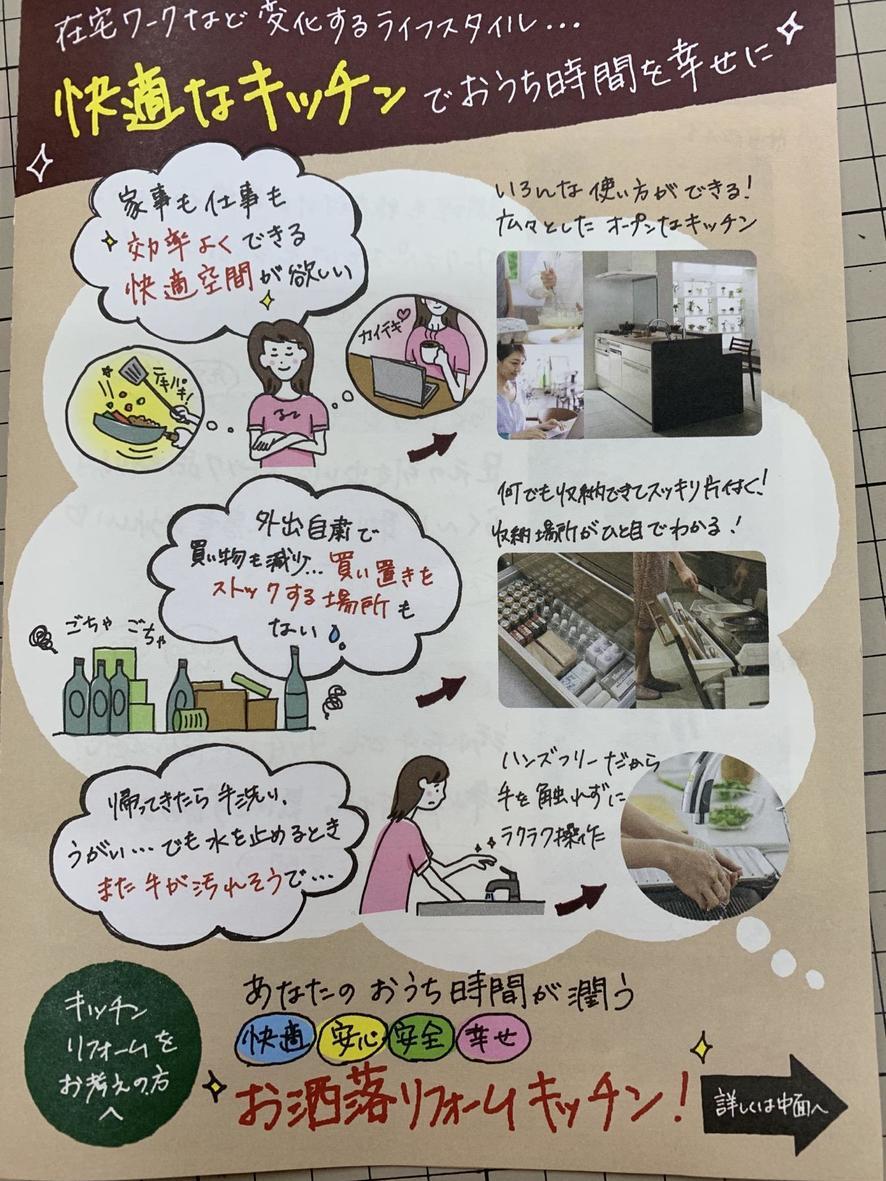 在宅ワークなど変化するライフスタイル...
快適なキッチンでおうち時間を幸せに
家事も仕事も
効率よくできる
快適空間が欲しい
テキパキ!
カイテキ♡
いろんな使い方ができる!
広々としたオープンなキッチン
外出自粛で
買い物も減り...買い置きを
ストックする場所も
ない
ごちゃごちゃ
何でも収納できてスッキリ片付く!
収納場所がひと目でわかる!
帰ってきたら手洗い、
うがい...でも水を止めるとき
また手が汚れそうで...
ハンズフリーだから
手を触れずに
ラクラク操作
キッチン
リフォームを
お考えの方
へ
あなたのおうち時間が潤う
快適 安心 安全 幸せ
お洒落リフォームキッチン!
詳しくは中面へ